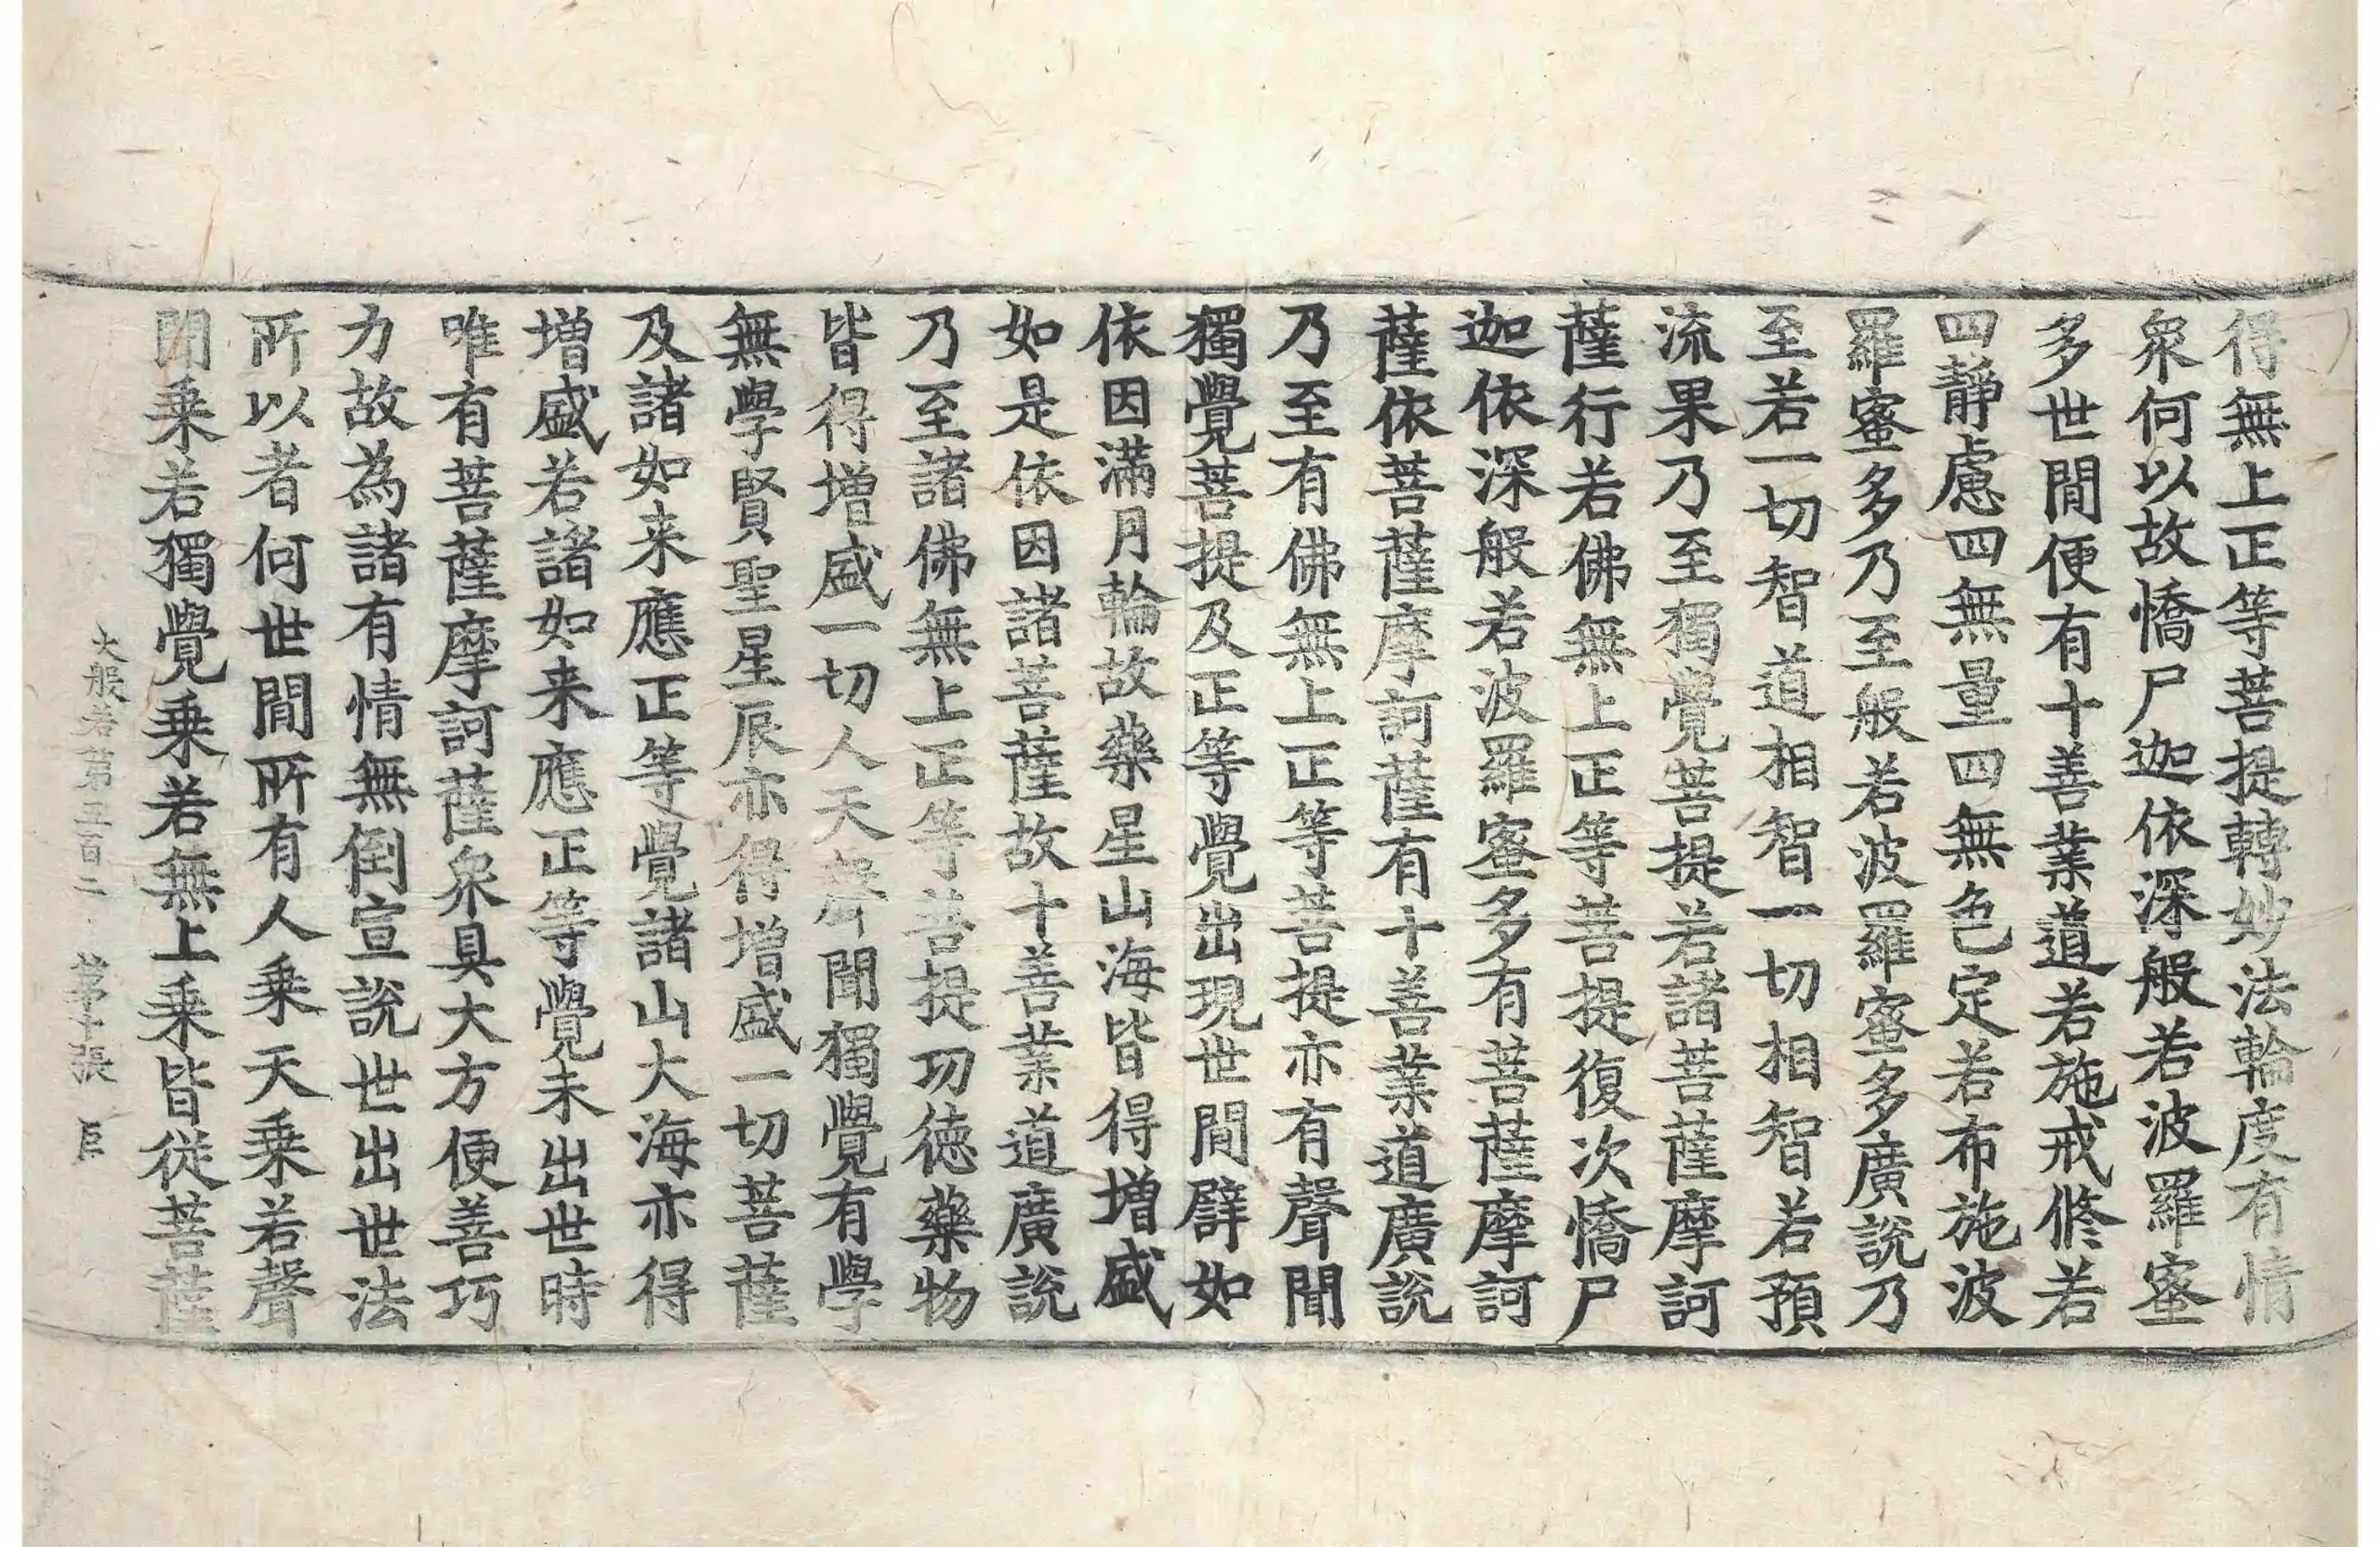 得無上正等菩提轉妙法輪度有情
衆何以故憍尸迦依深般若波羅蜜
多世間便有十善業道若施戒修若
四靜慮四無量四無色定若布施波
羅蜜多乃至般若波羅蜜多廣說乃
至若一切智道相智一切相智若預
流果乃至獨覺菩提若諸菩薩摩訶
薩行若佛無上正等菩提復次憍尸
迦依深般若波羅蜜多有菩薩摩訶
薩依菩薩摩訶薩有十善業道廣說
乃至有佛無上正等菩提亦有聲聞
獨覺菩提及正等覺出現世間譬如
依因滿月輪故藥星山海皆得增盛
如是依因諸菩薩故十善業道廣說
乃至諸佛無上正等菩提功德藥物
皆得增盛一切人天聲聞獨覺有學
無學賢聖星辰亦得增盛一切菩薩
及諸如来應正等覺諸山大海亦得
增盛若諸如来應正等覺未出世時
唯有菩薩摩訶薩衆具大方便善巧
力故為諸有情無倒宣說世出世法
所以者何世間所有人乗天乗若聲
聞乗若獨覺乗若無上乗皆從菩薩
大般若第五百二 第十張 臣